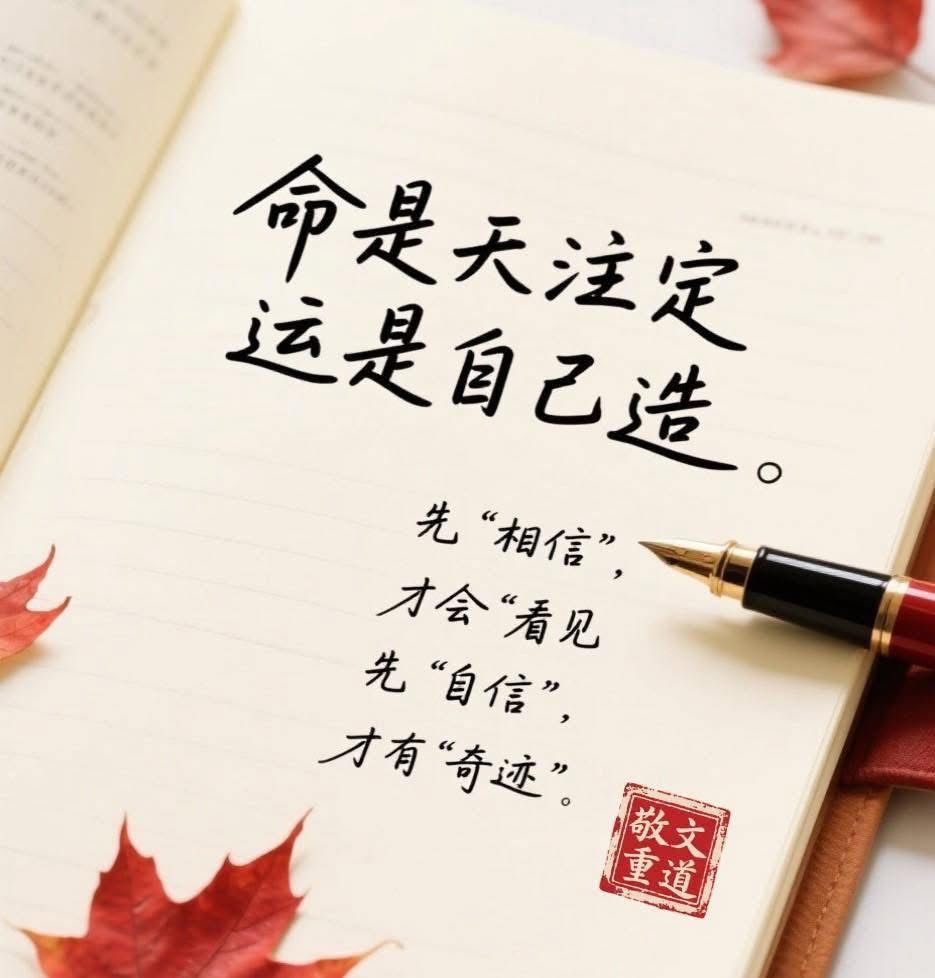 命是天注定
运是自己造。
先“相信”，
才会“看见
先“自信”，
才有“奇迹”。
敬文
重道